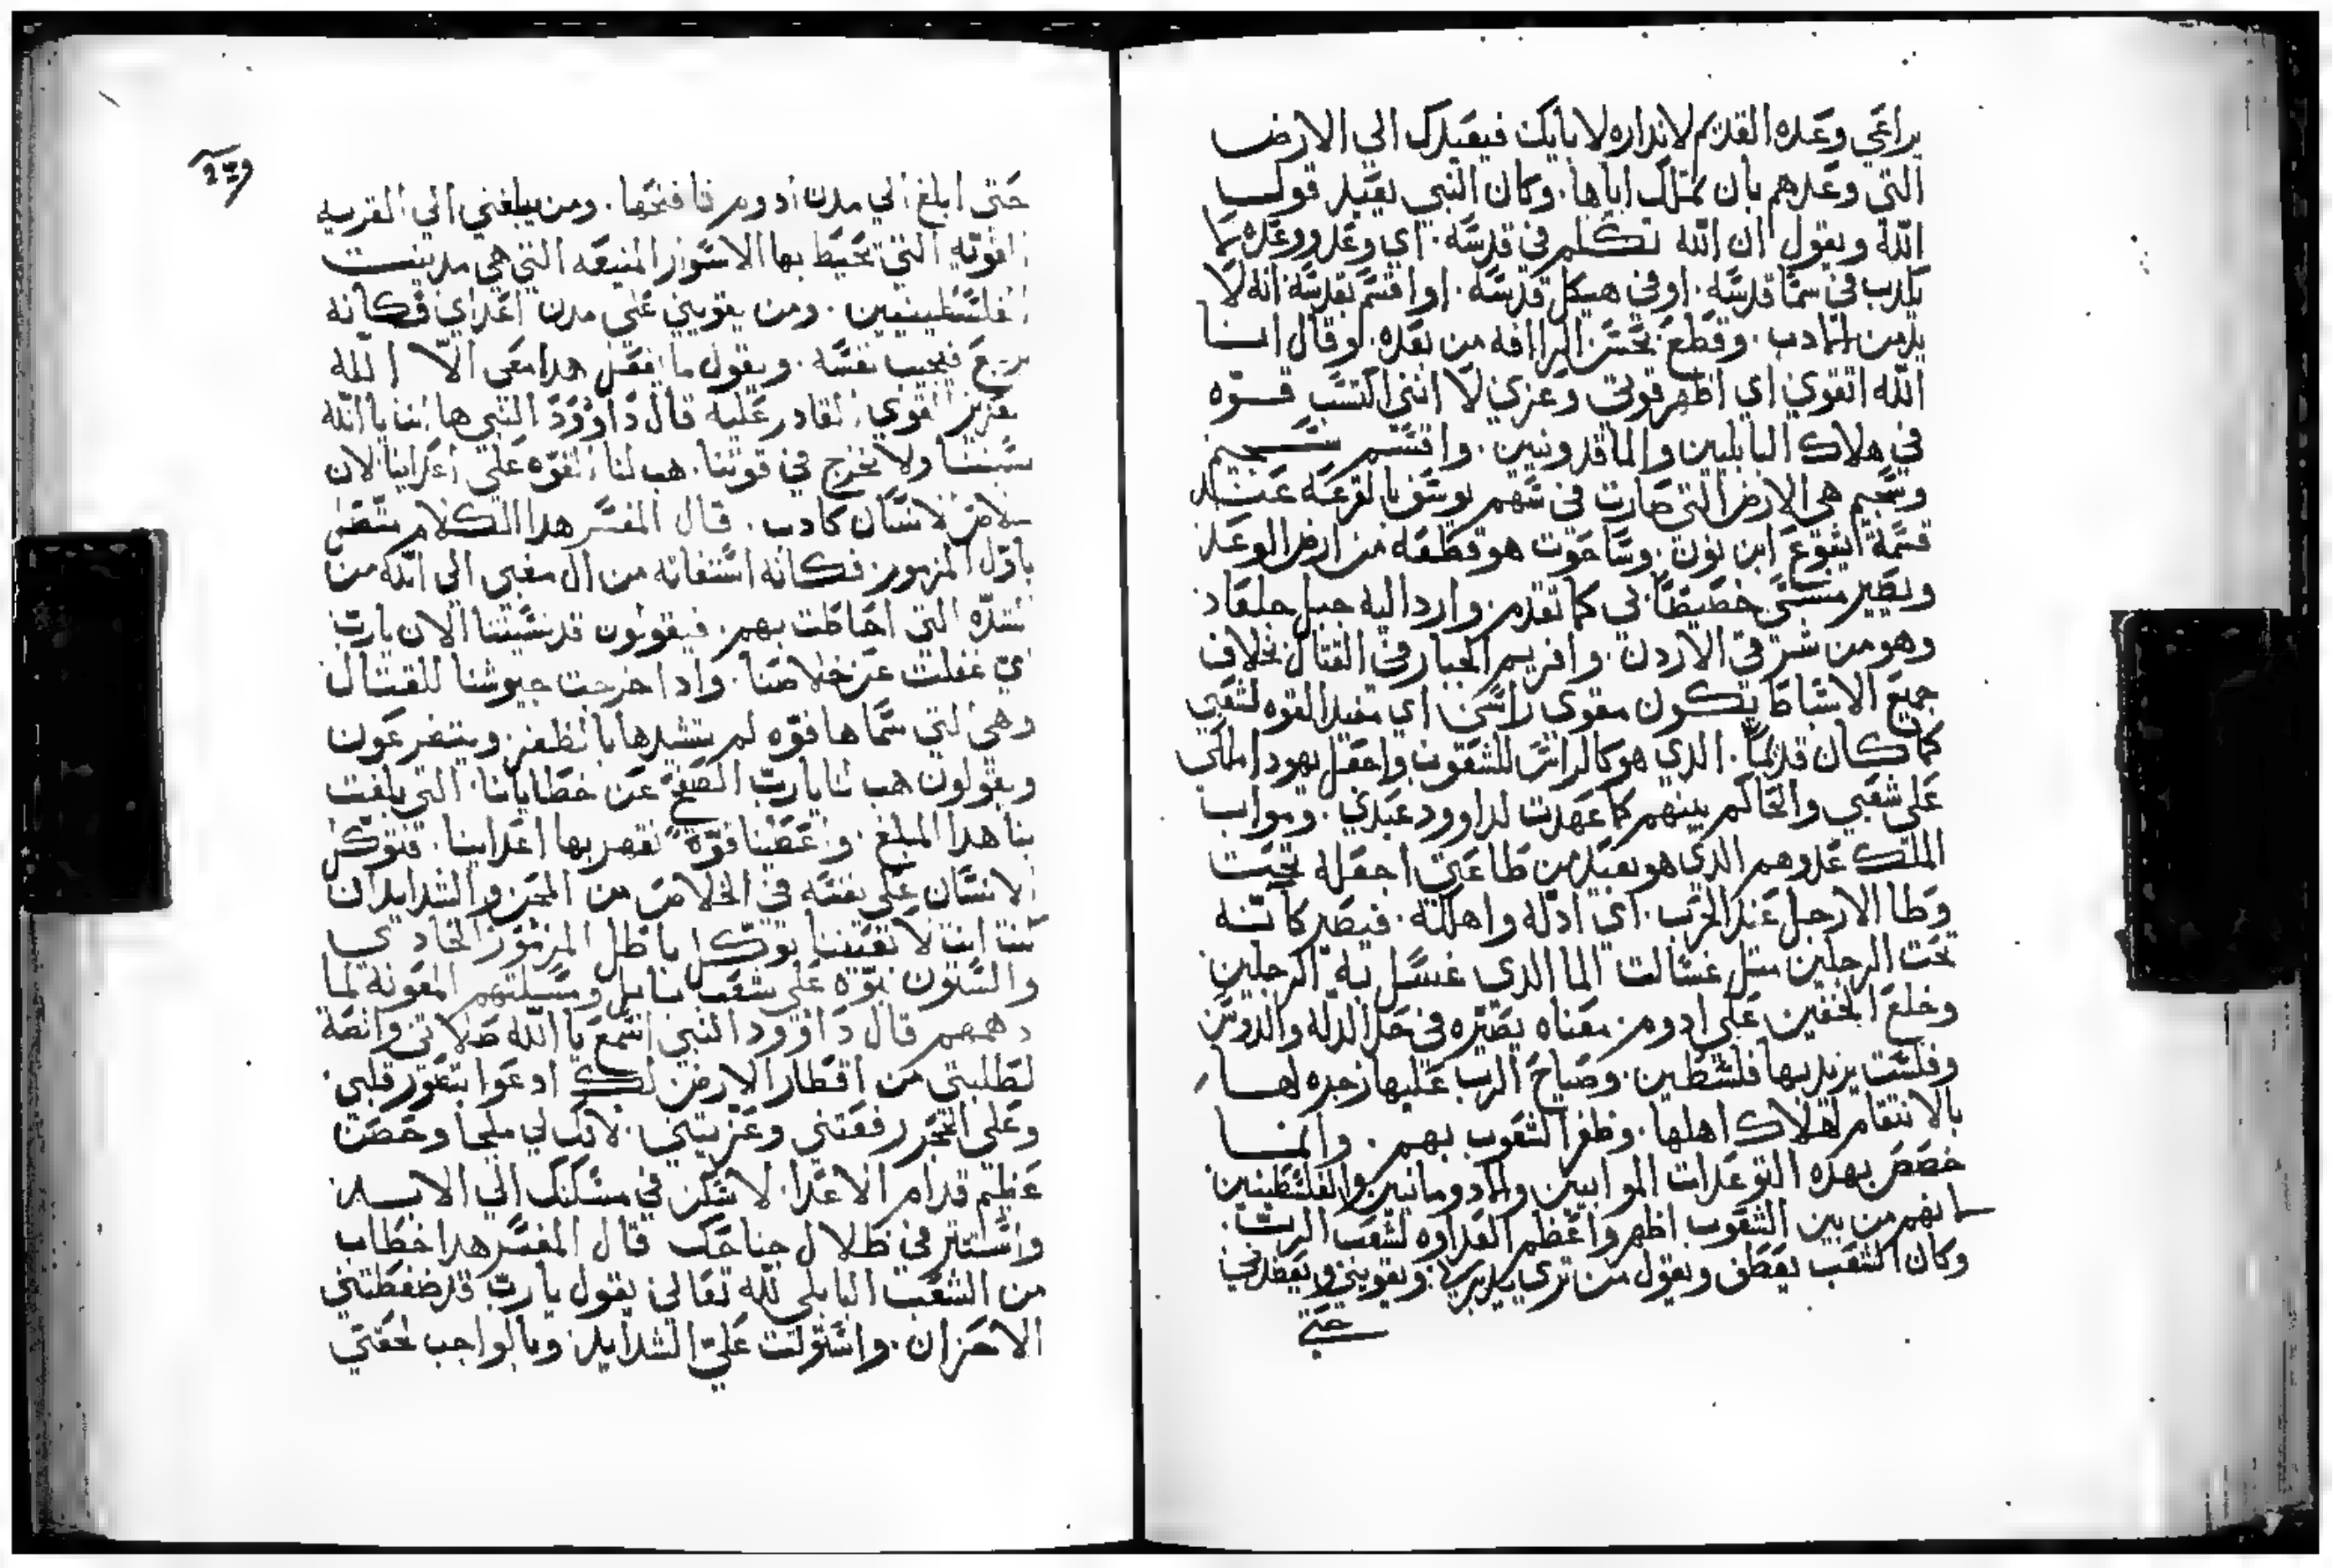 يراعي وعده القديم لانداره لابايك فيعيدك الي الارض
التي وعدهم بان يملك اياها. وكان النبي يعيد قول
الله ويقول ان الله تكلم في قدسه. اي وعد ووعده لا
يكدب في سما قدسه. اوفي هيكل قدسه. اواقسم بقدسه انه لا
من وقطع من بعده. وقال انا
الله القوي اي اظهر قوتي وعزي لا انني اكتسب قوه
في هلاك البابليين والماقدونيين. واقسم سحيم
وسحيم هي الارض التي صارت في سهم يوسف بالقرعه عند
قسمة ايشوع ابن نون. وساحوت هو قطعه من ارض الوعد
وتصير خصيصا لي كما تقدم. واردا اليه جبل جلعاد
وهو من شرقي الاردن. وافريم الجبار في القتال بخلاف
جميع الاسباط يكون مقوي راسي اي مفيد القوه لشعبي
كما كان قديما. الدي هو كالراس للشعوب واجعل يهودا ملكي
علي شعبي والحاكم بينهم كما عهدت لداوود عبدي. ومواب
الملك عدوهم الدي هو بعيد من طاعتي اجعله تحت
وطا الارجل عند الحرب. اي ادله واهلكه. فيصير كانه
تحت الرجلين متل غسالت الما الدي غسل به الرجلين
وخلع الخفين علي ادوم. معناه يصيره في حد الدله والدوس
وفلست يريد بها فلسطين. وصياح الرب عليها زجره لها
بالانتقام لهلاك اهلها. وظفر الشعوب بهم. وانما
خصص بهده التوعدات الموابيين والادومانيين والفلسطينيين
لانهم من بين الشعوب اظهر واعظم العداوه لشعب الرب.
وكان الشعب يعطف ويقول من تري ويقويني ويعضدني
حتي
حتي ابلغ الي مدن ادوم فافتحها. ومن يبلغني الي القريه
القويه التي تحيط بها الاسوار المنيعه التي هي مدينت
الفلسطينيين. ومن يقويني علي مدن اعداي فكانه
يرجع فيجيب نفسه. ويقول ما يفعل هدا معي الا الله
العزيز القوي القادر عليه قال داوود النبي ها انت يا الله
نسيتنا ولا تخرج في قوتنا. هب لنا القوه علي اعداينا لان
خلاص الانسان كادب. قال المفسر هدا الكلام متصل
باول المزمور. فكانه استغاته من ال سبي الي الله من
الشده التي احاطت بهم. فيقولون قد نسيتنا الان يارب
اي غفلت عن خلاصنا. وادا خرجت جيوشنا للقتال
وهي التي سماها قوه لم تشيدها بالظفر. ويتضرعون
ويقولون هب لنا يارب الصفح عن خطايانا. التي بلغت
بنا هدا المبلغ. واعطينا قوة نقهر بها اعداينا. فتوكل
الانسان علي نفسه في الخلاص من المحن والشدايد ان
كنت انت لا تعيننا توكل باطل المزمور الحادي
والستون نبوه علي شعب بابل ومسيلتهم المعونة لما
دهمهم قال داوود النبي اسمع يا الله صلاتي وانصة
لطلبتي من اقطار الارض لك ادعوا بتعور قلبي.
وعلي الصخر رفعتني وعزيتني. لانك لي ملجا وحصن
عظيم قدام الاعدا. لاسكن في مسكنك الي الابد.
واستتر في ظلال جناحك قال المفسر هدا خطاب
من الشعب البابلي لله تعالي يقول يارب قد ضغطتني
الاحزان. واستولت علي الشدايد. وبالواجب لحقتي